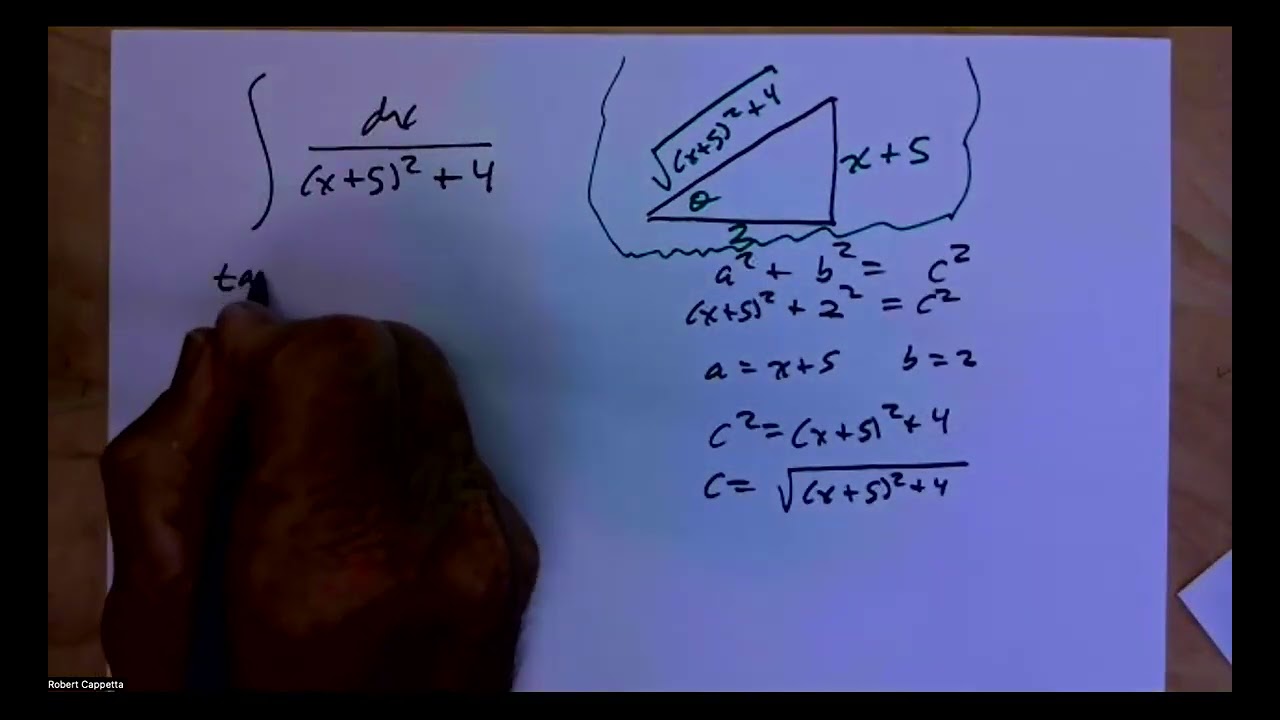 ∫ dx / (x+5)² + 4
√(x+5)² + 4
x + 5
θ
2
a² + b² = c²
(x+5)² + 2² = c²
a = x+5 b = 2
c² = (x+5)² + 4
c = √(x+5)² + 4
ta
Robert Cappetta